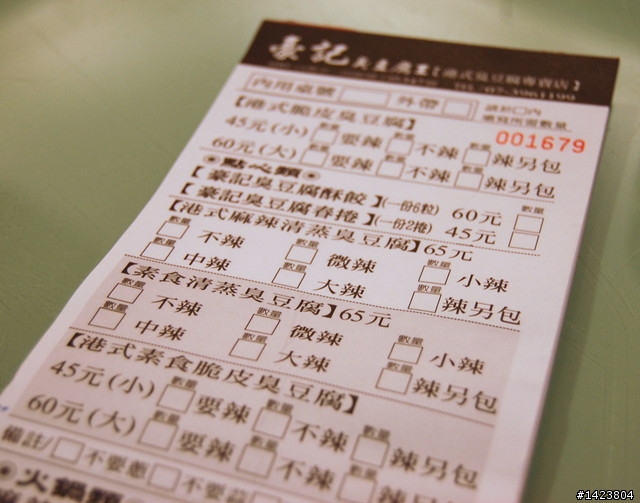 豪記臭豆腐王【港式臭豆腐專賣店】
TEL:07-3961199
內用桌號 外帶 請於□內
填寫所需數量
【港式脆皮臭豆腐】 001679
45元(小) 數量 要辣 數量 不辣 數量 辣另包
60元(大) 要辣 不辣 辣另包
點心類
【豪記臭豆腐酥餃】(一份6粒) 60元 數量
【豪記臭豆腐春捲】(一份2捲) 45元
【港式麻辣清蒸臭豆腐】65元
數量 不辣 數量 微辣 數量 小辣
數量 中辣 數量 大辣 數量 辣另包
【素食清蒸臭豆腐】65元
數量 不辣 數量 微辣 數量 小辣
數量 中辣 數量 大辣 數量 辣另包
【港式素食脆皮臭豆腐】
45元(小) 數量 要辣 數量 不辣 數量 辣另包
60元(大) 要辣 不辣 辣另包
備註/ 不要蔥 不要蒜
火鍋類
#1423804